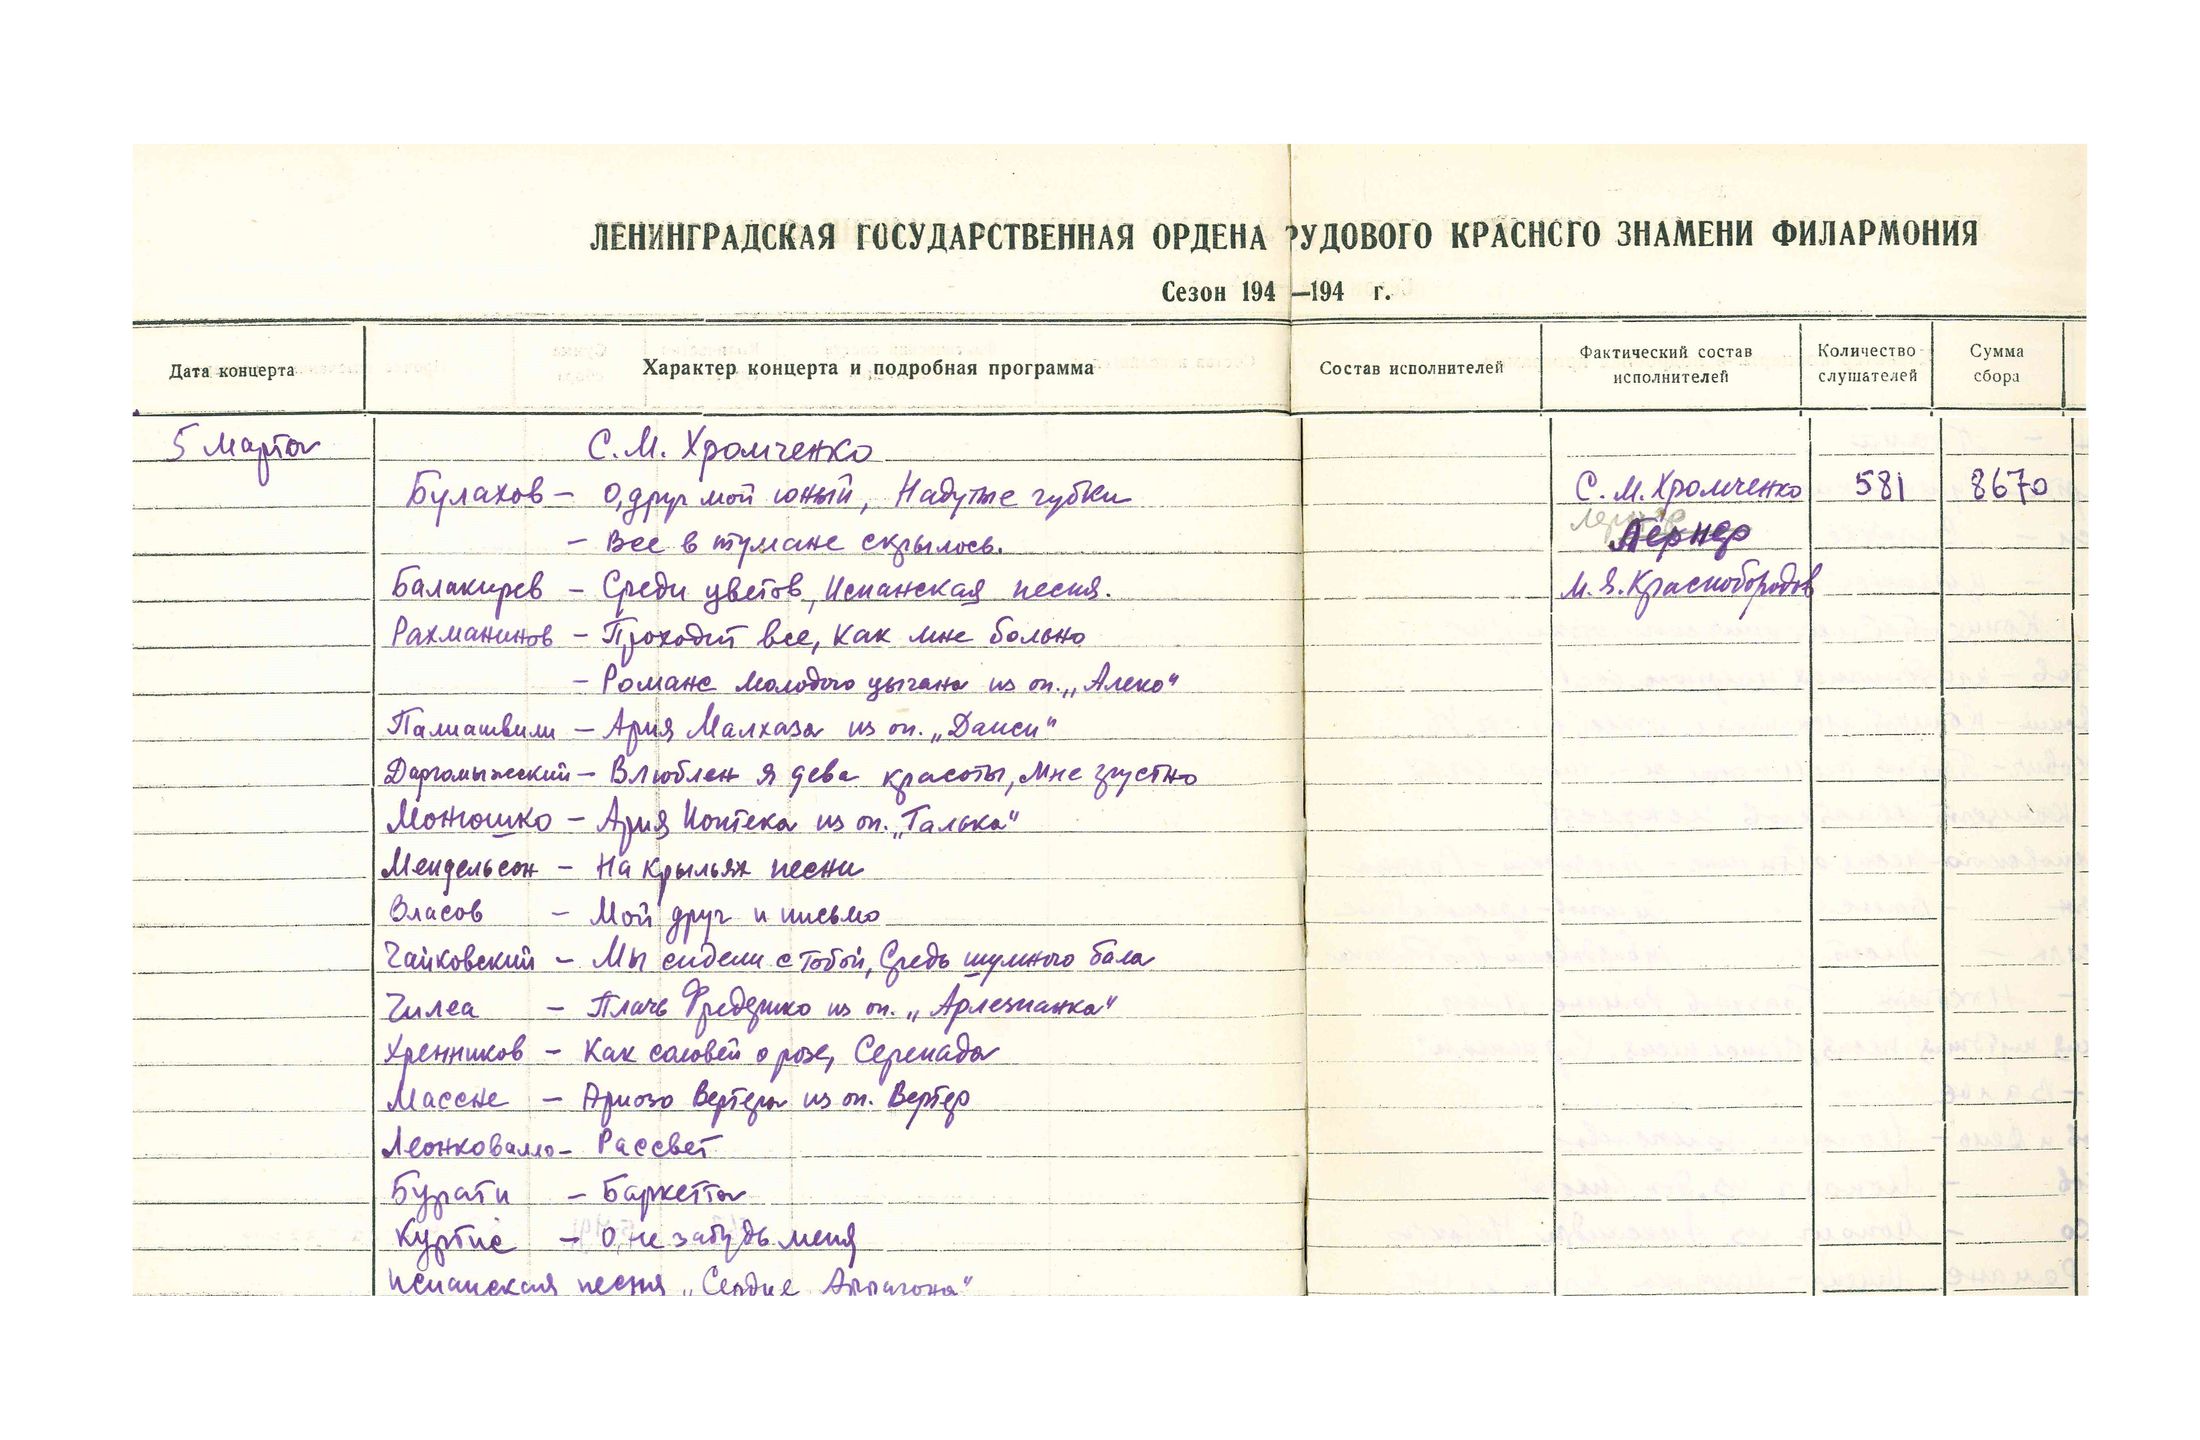 ЛЕНИНГРАДСКАЯ ГОСУДАРСТВЕННАЯ ОРДЕНА РУДОВОГО КРАСНСГО ЗНАМЕНИ ФИЛАРМОНИЯ
Сезон 194 —194 г.
Дата концерта
Характер концерта и подробная программа
Состав исполнителей
Фактический состав исполнителей
Количество слушателей
Сумма сбора
5 Марта С. М. Хромченко
Булахов – О, друг мой юный, Надутые губки С. М. Хромченко 581 8670
– Все в тумане скрылось. Лернер
Балакирев – Среди цветов, Испанская песня. М. Я. Краснобородов
Рахманинов – Проходит все, Как мне больно
– Романс молодого цыгана из оп. „Алеко"
Палиашвили – Ария Малхаза из оп. „Даиси"
Даргомыжский – Влюблен я дева красоты, Мне грустно
Монюшко – Ария Ионтека из оп. „Галька"
Мендельсон – На крыльях песни
Власов – Мой друг и письмо
Чайковский – Мы сидели с тобой, Средь шумного бала
Чилеа – Плачь Фредерико из оп. „Арлезианка"
Хренников – Как соловей о розе, Серенада
Массне – Ариозо Вертера из оп. Вертер
Леонковалло – Рассвет
Бузати – Баркетта
Куртис – О, не забудь меня
Испанская песня „Сердце Аррагона"